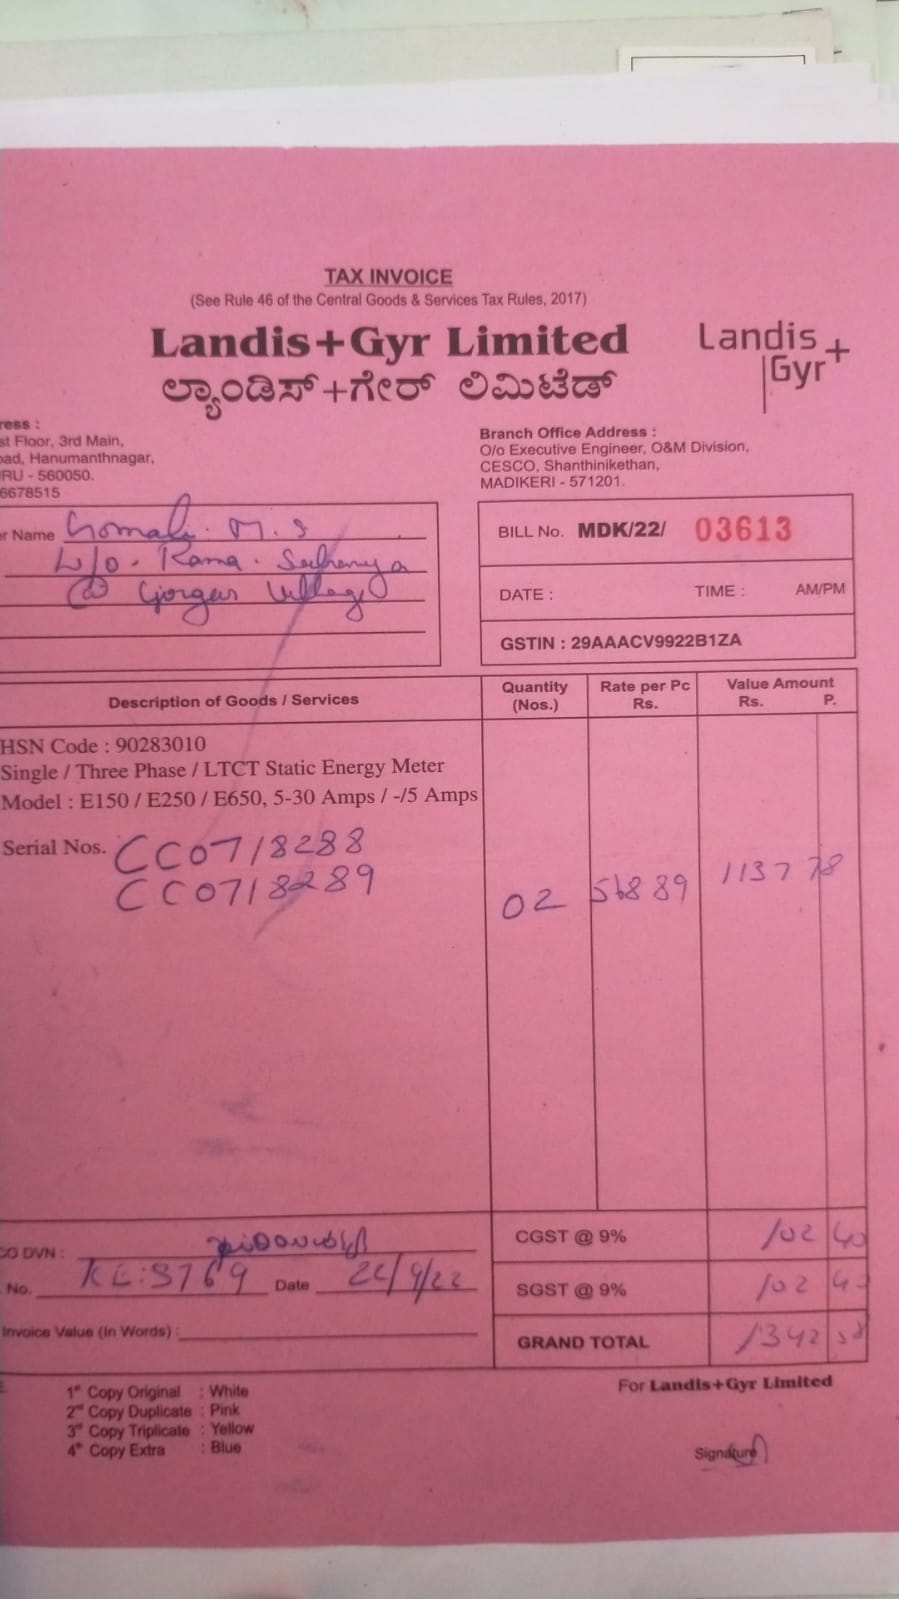 TAX INVOICE
(See Rule 46 of the Central Goods & Services Tax Rules, 2017)
Landis+Gyr Limited
ಲ್ಯಾಂಡಿಸ್+ಗೇರ್ ಲಿಮಿಟೆಡ್
Landis
Gyr+
ress :
st Floor, 3rd Main,
oad, Hanumanthnagar,
RU - 560050.
6678515
Branch Office Address :
O/o Executive Engineer, O&M Division,
CESCO, Shanthinikethan,
MADIKERI - 571201.
r Name M.S
W/o. Rama.
@ Village
BILL No. MDK/22/ 03613
DATE : TIME : AM/PM
GSTIN : 29AAACV9922B1ZA
Description of Goods / Services
Quantity (Nos.)
Rate per Pc Rs.
Value Amount Rs. P.
HSN Code : 90283010
Single / Three Phase / LTCT Static Energy Meter
Model : E150 / E250 / E650, 5-30 Amps / -/5 Amps
Serial Nos. CC0718288
CC0718289
02 568 89 1137 78
CO DVN :
No. Date
Invoice Value (In Words) :
CGST @ 9% 102 40
SGST @ 9% 102 40
GRAND TOTAL 1342 58
1st Copy Original : White
2nd Copy Duplicate : Pink
3rd Copy Triplicate : Yellow
4th Copy Extra : Blue
For Landis+Gyr Limited
Signature